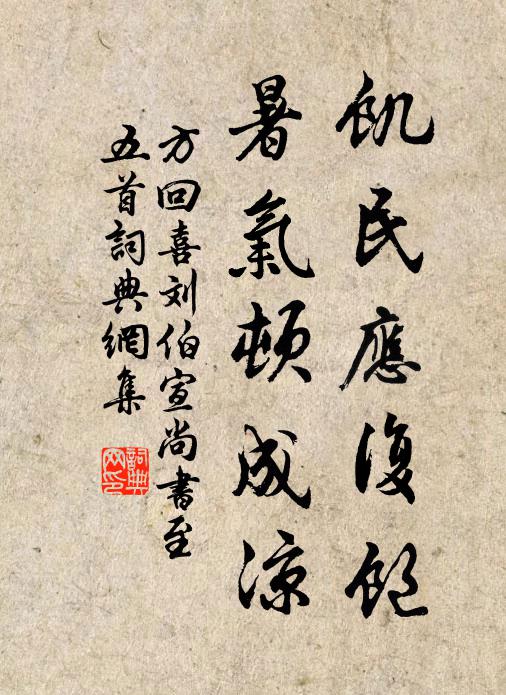 飢民應復飽
暑氣頓成涼
方回喜刘伯宣尚書至
五首詞典網集
詞典
网印